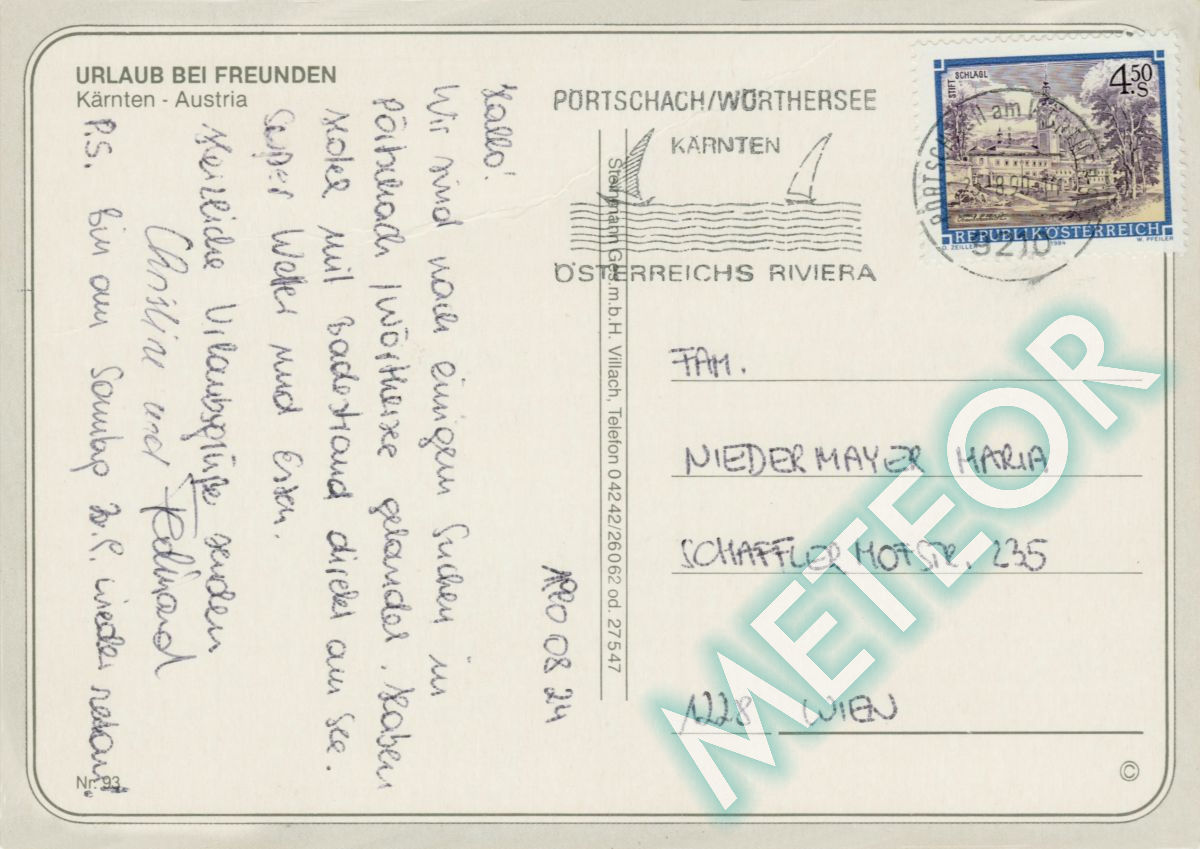 URLAUB BEI FREUNDEN
Kärnten - Austria
1990 08 24
Hallo!
Wir sind nach einigem Suchen in
Pörtschach/Wörthersee gelandet. Haben
Hotel mit Badestrand direkt am See.
Super Wetter und Essen.
Herzliche Urlaubsgrüße senden
Christine und Ferdinand
P.S. Bin am Sonntag wieder
Nr. 93
Steinmann Ges.m.b.H. Villach, Telefon 04242/26062 od. 27547
PÖRTSCHACH/WÖRTHERSEE
KÄRNTEN
ÖSTERREICHS RIVIERA
STIFT SCHLÄGL
4.50 S
REPUBLIK ÖSTERREICH
O. ZEILLER 1984 W. PFEILER
9210
FAM.
NIEDERMAYER MARIA
SCHAFFLERHOFSTR. 235
1228 WIEN
©
METEOR